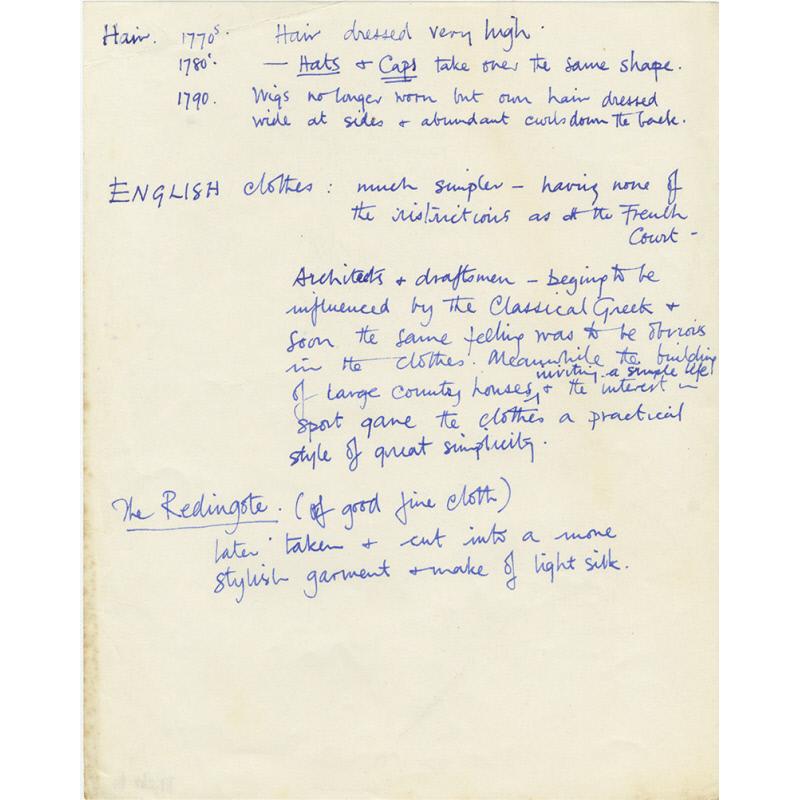 Hair. 1770s. Hair dressed very high.
1780s. — Hats & Caps take over the same shape.
1790. Wigs no longer worn but own hair dressed
wide at sides & abundant curls down the back.
ENGLISH clothes: much simpler – having none of
the ristrictions as at the French
Court –
Architects & draftsmen – begining to be
influenced by the Classical Greek &
soon the same feeling was to be obvious
in the clothes. Meanwhile the building
inviting a simple life
of large country houses, & the interest in
sport gave the clothes a practical
style of great simplicity.
The Redingote. (of good fine cloth)
later taken & cut into a more
stylish garment & make of light silk.